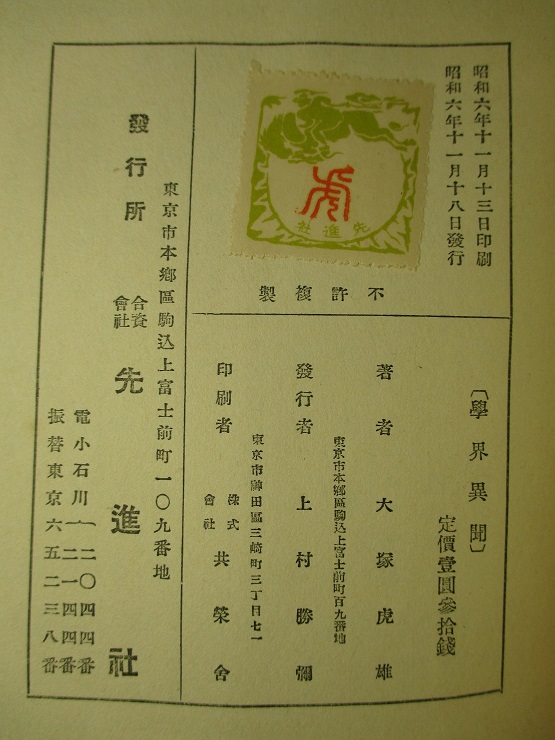 昭和六年十一月十三日印刷
昭和六年十一月十八日發行
先進社
不許複製
〔學界異聞〕
定價壹圓參拾錢
著者 大塚虎雄
東京市本鄕區駒込上富士前町百九番地
發行者 上村勝彌
東京市神田區三崎町三丁目七一
印刷者 株式會社 共榮舍
東京市本鄕區駒込上富士前町一〇九番地
發行所 合資會社 先進社
電小石川(二〇四四番
二一四四番
振替東京六五二三八番